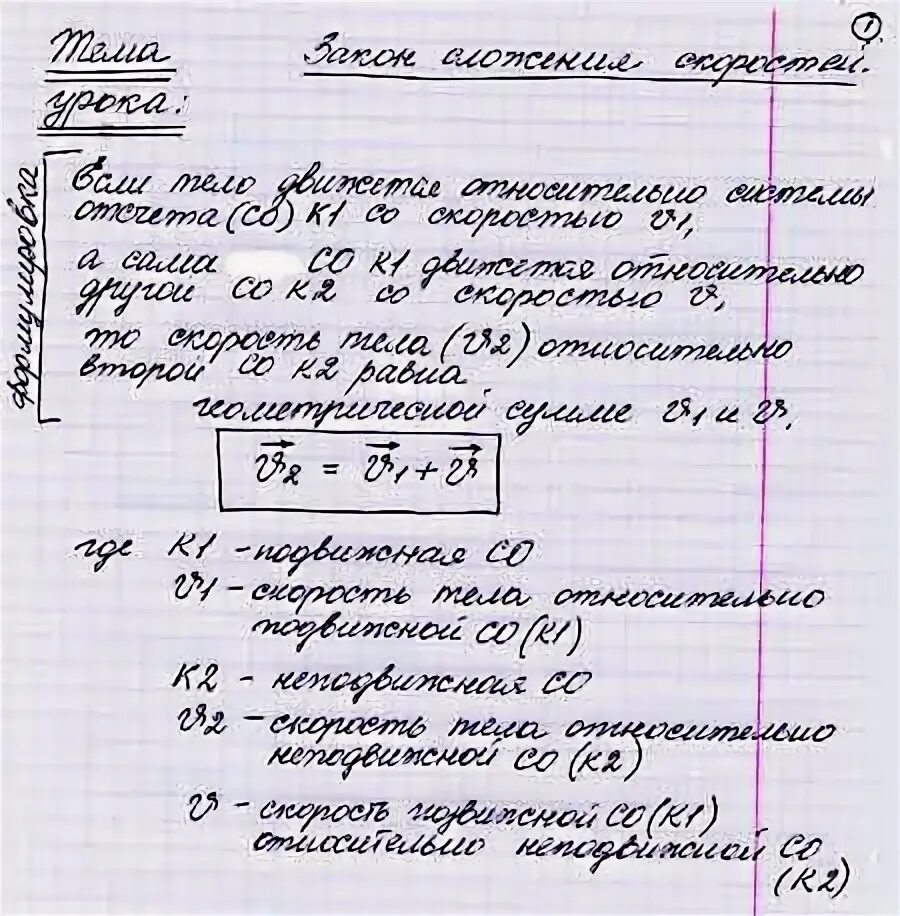 ①
Тема Закон сложения скоростей.
урока:
формулировка
Если тело движется относительно системы
отсчета (СО) К1 со скоростью υ1,
а сама СО К1 движется относительно
другой СО К2 со скоростью υ,
то скорость тела (υ2) относительно
второй СО К2 равна
геометрической сумме υ1 и υ.
υ⃗2 = υ⃗1 + υ⃗
где К1 - подвижная СО
υ1 - скорость тела относительно
подвижной СО (К1)
К2 - неподвижная СО
υ2 - скорость тела относительно
неподвижной СО (К2)
υ - скорость подвижной СО (К1)
относительно неподвижной СО
(К2)